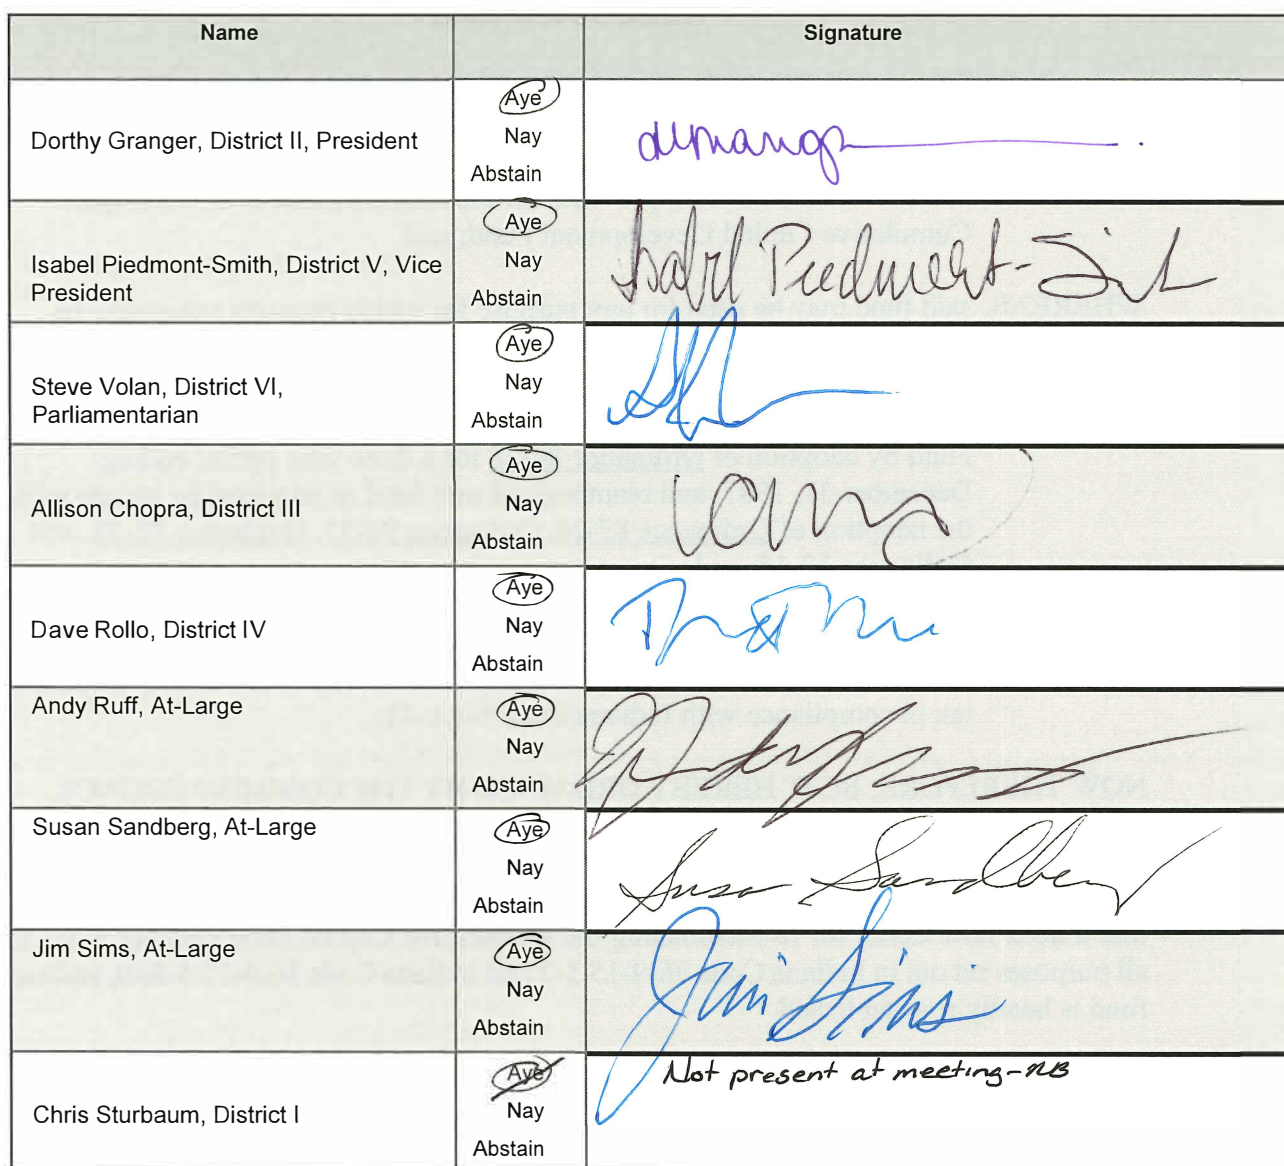 Name Signature
Aye
Dorthy Granger, District II, President
Nay
Abstain
Aye
Isabel Piedmont-Smith, District V, Vice
President
Nay
Abstain
Isabel Piedmont-Smith
Aye
Steve Volan, District VI,
Parliamentarian
Nay
Abstain
Aye
Allison Chopra, District III
Nay
Abstain
Aye
Dave Rollo, District IV
Nay
Abstain
Andy Ruff, At-Large
Aye
Nay
Abstain
Susan Sandberg, At-Large
Aye
Nay
Abstain
Susan Sandberg
Jim Sims, At-Large
Aye
Nay
Abstain
Jim Sims
Aye
Not present at meeting-NB
Chris Sturbaum, District I
Nay
Abstain